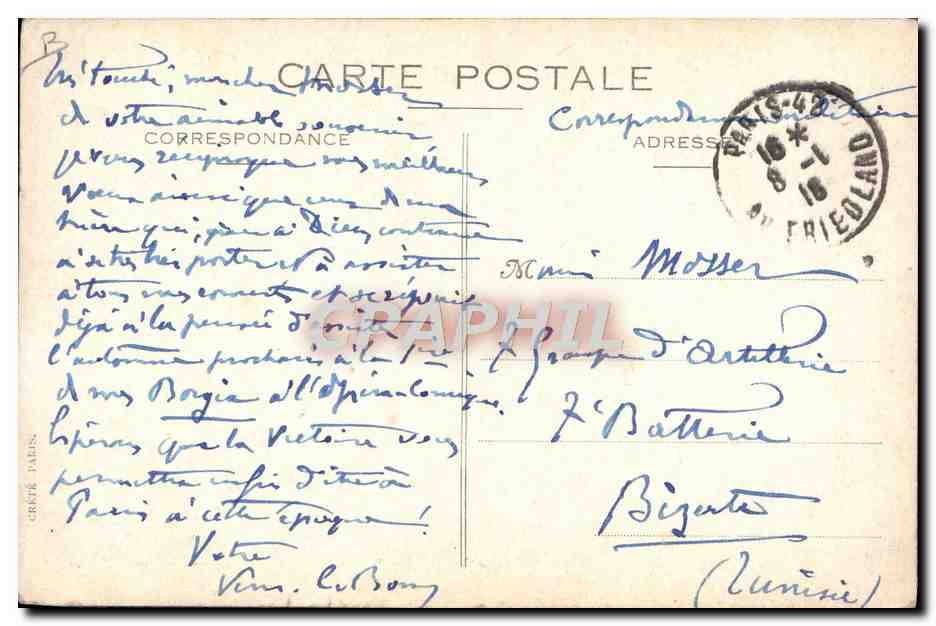 B
CARTE POSTALE
CORRESPONDANCE
ADRESSE
Très touché, mon cher Mosser
de votre aimable souvenir
je vous réciproque mes meilleurs
vœux ainsi que ceux de ma
mère qui, grâce à Dieu, continue
à être très portée et à assister
à tous mes concerts et se réjouit
déjà à la pensée d'assister
l'automne prochain à la 1re
de mes Borgia à l'Opéra-Comique.
Espérons que la Victoire vous
permettra enfin d'être à
Paris à cette époque !
Votre
Correspondance militaire
PARIS-42
16 *
8 -1
16
AV FRIEDLAND
M Mosser
7 Groupe d'Artillerie
7e Batterie
Bizerte
(Tunisie)
CRÉTÉ PARIS.
CPAPHIL